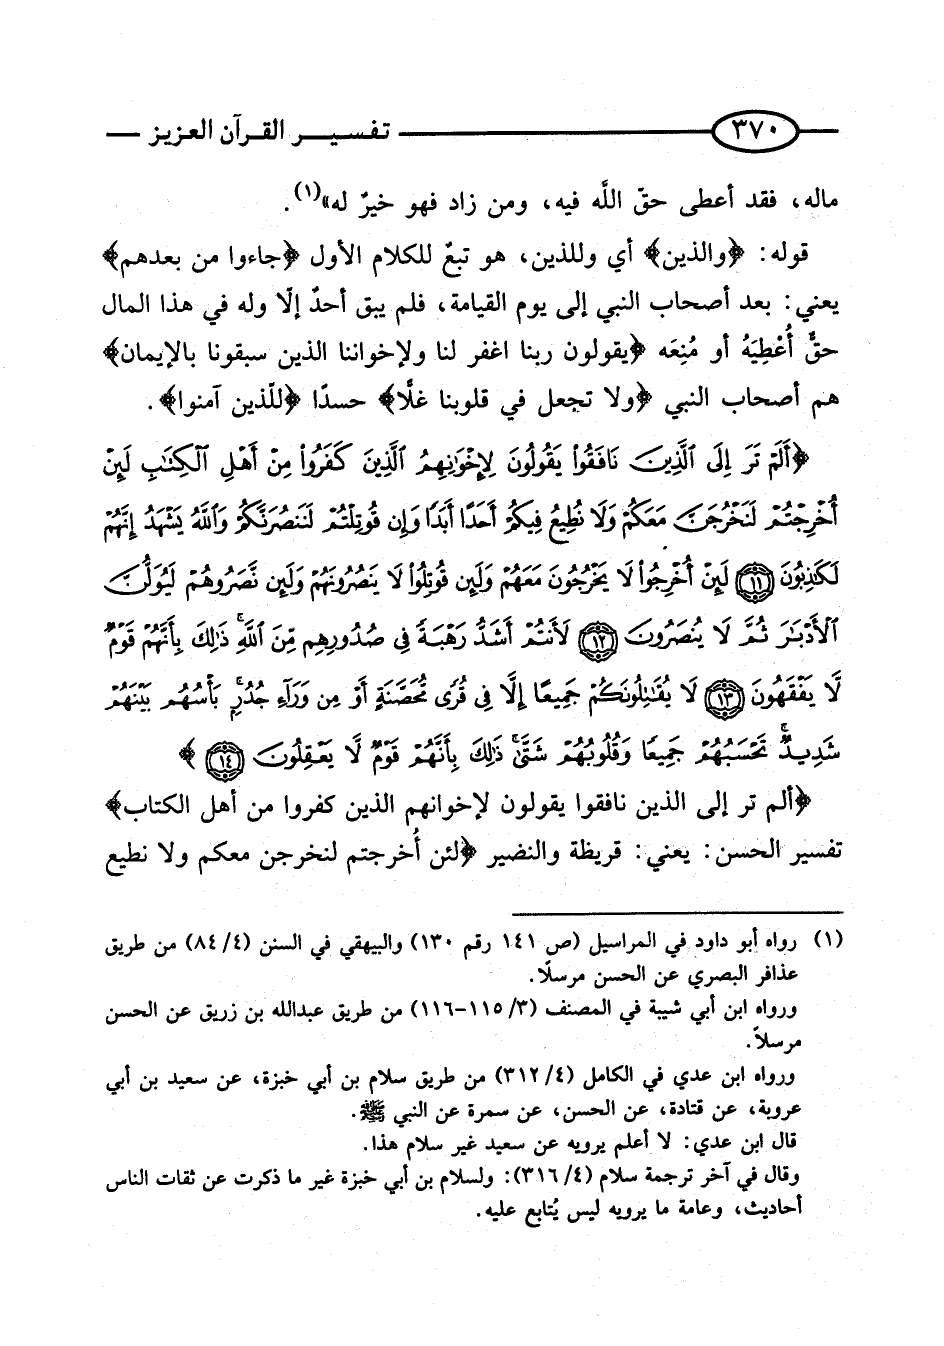 ٣٧٠ تفسير القرآن العزيز
ماله، فقد أعطى حقّ اللَّه فيه، ومن زاد فهو خيرٌ له»(١).
قوله: ﴿والذين﴾ أي وللذين، هو تبعٌ للكلام الأول ﴿جاءوا من بعدهم﴾
يعني: بعد أصحاب النبي إلى يوم القيامة، فلم يبق أحدٌ إلّا وله في هذا المال
حقٌّ أُعْطِيَهُ أو مُنِعَه ﴿يقولون ربنا اغفر لنا ولإخواننا الذين سبقونا بالإيمان﴾
هم أصحاب النبي ﴿ولا تجعل في قلوبنا غلًّا﴾ حسدًا ﴿للّذين آمنوا﴾.
﴿أَلَمْ تَرَ إِلَى ٱلَّذِينَ نَافَقُوا۟ يَقُولُونَ لِإِخْوَٰنِهِمُ ٱلَّذِينَ كَفَرُوا۟ مِنْ أَهْلِ ٱلْكِتَٰبِ لَئِنْ
أُخْرِجْتُمْ لَنَخْرُجَنَّ مَعَكُمْ وَلَا نُطِيعُ فِيكُمْ أَحَدًا أَبَدًا وَإِن قُوتِلْتُمْ لَنَنصُرَنَّكُمْ وَٱللَّهُ يَشْهَدُ إِنَّهُمْ
لَكَٰذِبُونَ ١١ لَئِنْ أُخْرِجُوا۟ لَا يَخْرُجُونَ مَعَهُمْ وَلَئِن قُوتِلُوا۟ لَا يَنصُرُونَهُمْ وَلَئِن نَّصَرُوهُمْ لَيُوَلُّنَّ
ٱلْأَدْبَٰرَ ثُمَّ لَا يُنصَرُونَ ١٢ لَأَنتُمْ أَشَدُّ رَهْبَةً فِى صُدُورِهِم مِّنَ ٱللَّهِ ۚ ذَٰلِكَ بِأَنَّهُمْ قَوْمٌ
لَّا يَفْقَهُونَ ١٣ لَا يُقَٰتِلُونَكُمْ جَمِيعًا إِلَّا فِى قُرًى مُّحَصَّنَةٍ أَوْ مِن وَرَآءِ جُدُرٍۭ ۚ بَأْسُهُم بَيْنَهُمْ
شَدِيدٌ ۚ تَحْسَبُهُمْ جَمِيعًا وَقُلُوبُهُمْ شَتَّىٰ ۚ ذَٰلِكَ بِأَنَّهُمْ قَوْمٌ لَّا يَعْقِلُونَ ١٤ ﴾
﴿ألم تر إلى الذين نافقوا يقولون لإخوانهم الذين كفروا من أهل الكتاب﴾
تفسير الحسن: يعني: قريظة والنضير ﴿لئن أُخرجتم لنخرجن معكم ولا نطيع
(١) رواه أبو داود في المراسيل (ص ١٤١ رقم ١٣٠) والبيهقي في السنن (٨٤/٤) من طريق
عذافر البصري عن الحسن مرسلًا.
ورواه ابن أبي شيبة في المصنف (٣/ ١١٥-١١٦) من طريق عبدالله بن زريق عن الحسن
مرسلاً.
ورواه ابن عدي في الكامل (٣١٢/٤) من طريق سلام بن أبي خبزة، عن سعيد بن أبي
عروبة، عن قتادة، عن الحسن، عن سمرة عن النبي ﷺ.
قال ابن عدي: لا أعلم يرويه عن سعيد غير سلام هذا.
وقال في آخر ترجمة سلام (٣١٦/٤): ولسلام بن أبي خبزة غير ما ذكرت عن ثقات الناس
أحاديث، وعامة ما يرويه ليس يُتابع عليه.